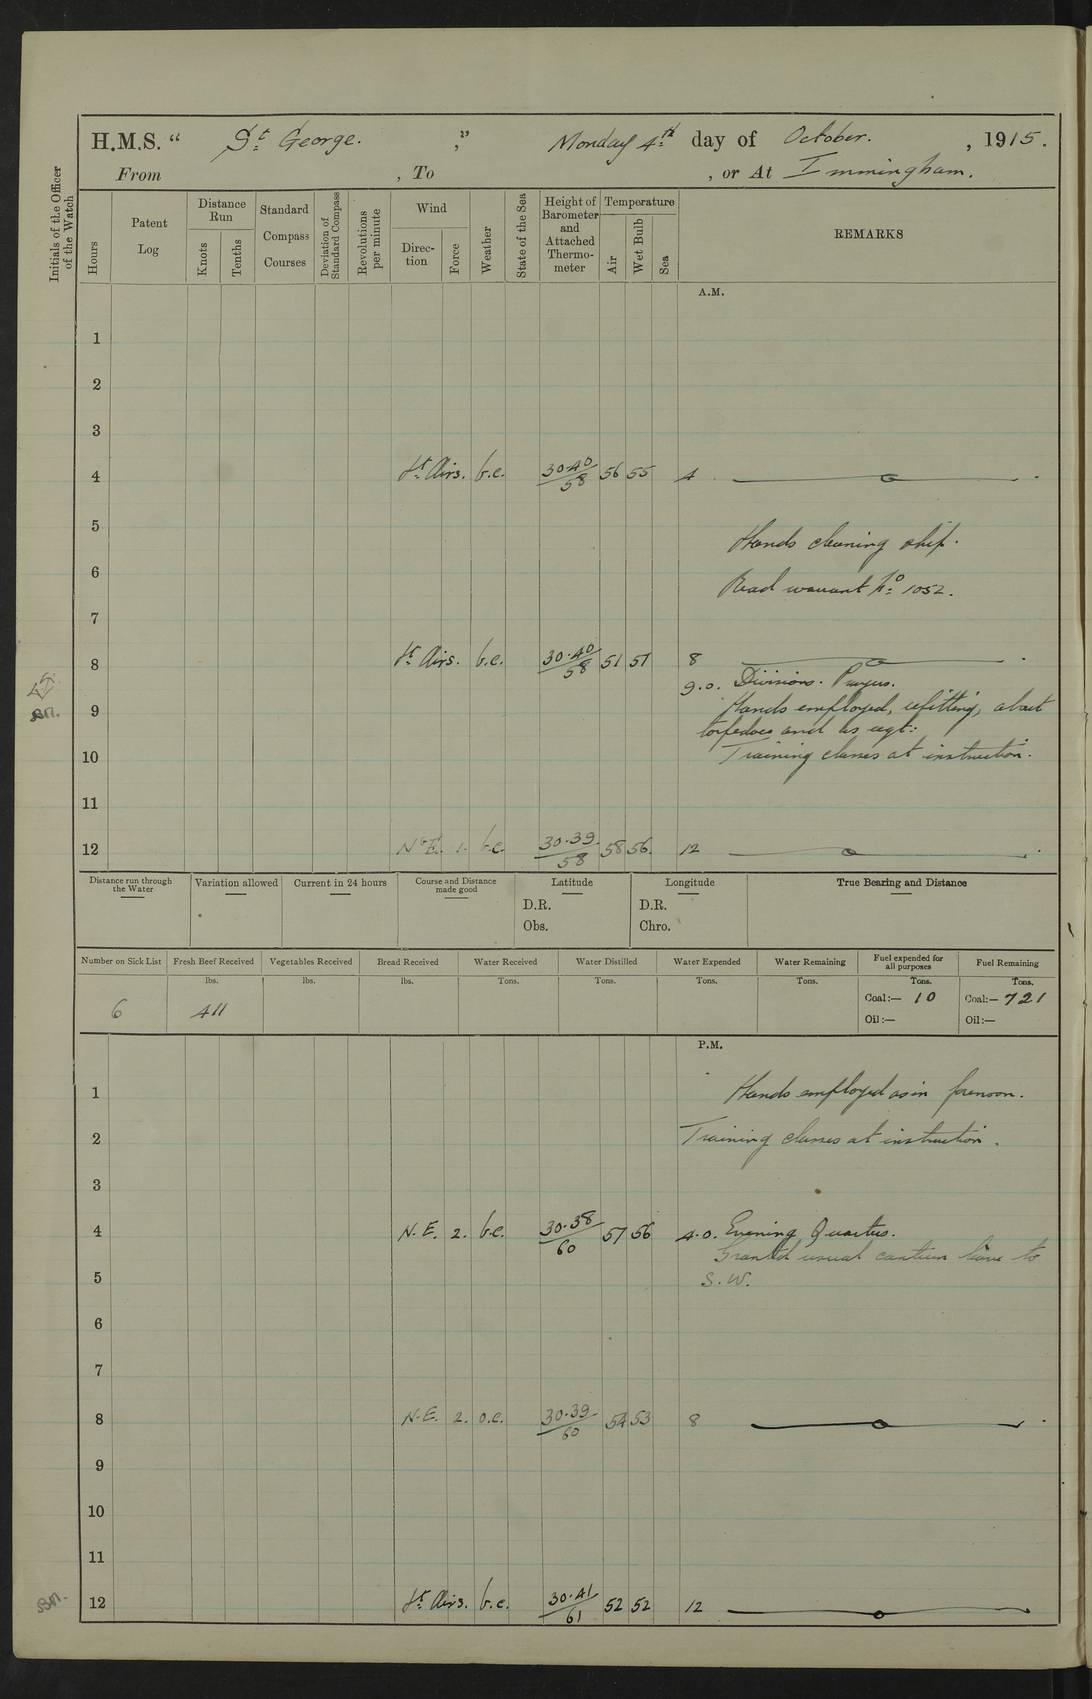 H.M.S. “ St. George. ,” Monday 4th day of October. , 1915.
From , To , or At Immingham.
Initials of the Officer of the Watch
Hours
Patent Log
Distance Run
Knots
Tenths
Standard Compass Courses
Deviation of Standard Compass
Revolutions per minute
Wind
Direc-tion
Force
Weather
State of the Sea
Height of Barometer and Attached Thermo-meter
Temperature
Air
Wet Bulb
Sea
REMARKS
A.M.
1
2
3
4 Lt. Airs. b.c. 30.40/58 56 55 4
5 Hands cleaning ship.
6 Read warrant No. 1052.
7
8 Lt. Airs. b.c. 30.40/58 51 51 8
9.0. Divisions. Prayers.
9 Hands employed, refitting, about
torpedoes and as reqt:
10 Training classes at instruction.
11
12 N.E. 1. b.c. 30.39/58 58 56. 12
Distance run through the Water
Variation allowed
Current in 24 hours
Course and Distance made good
Latitude
D.R.
Obs.
Longitude
D.R.
Chro.
True Bearing and Distance
Number on Sick List
Fresh Beef Received
Vegetables Received
Bread Received
Water Received
Water Distilled
Water Expended
Water Remaining
Fuel expended for all purposes
Fuel Remaining
lbs. lbs. lbs. Tons. Tons. Tons. Tons. Tons. Tons.
6 411 Coal:— 10 Coal:— 721
Oil:— Oil:—
P.M.
1 Hands employed as in forenoon.
2 Training classes at instruction.
3
4 N.E. 2. b.c. 30.38/60 57 56 4.0. Evening Quarters.
Granted usual canteen leave to
5 S.W.
6
7
8 N.E. 2. o.c. 30.39/60 54 53 8
9
10
11
12 Lt. Airs. b.c. 30.41/61 52 52 12